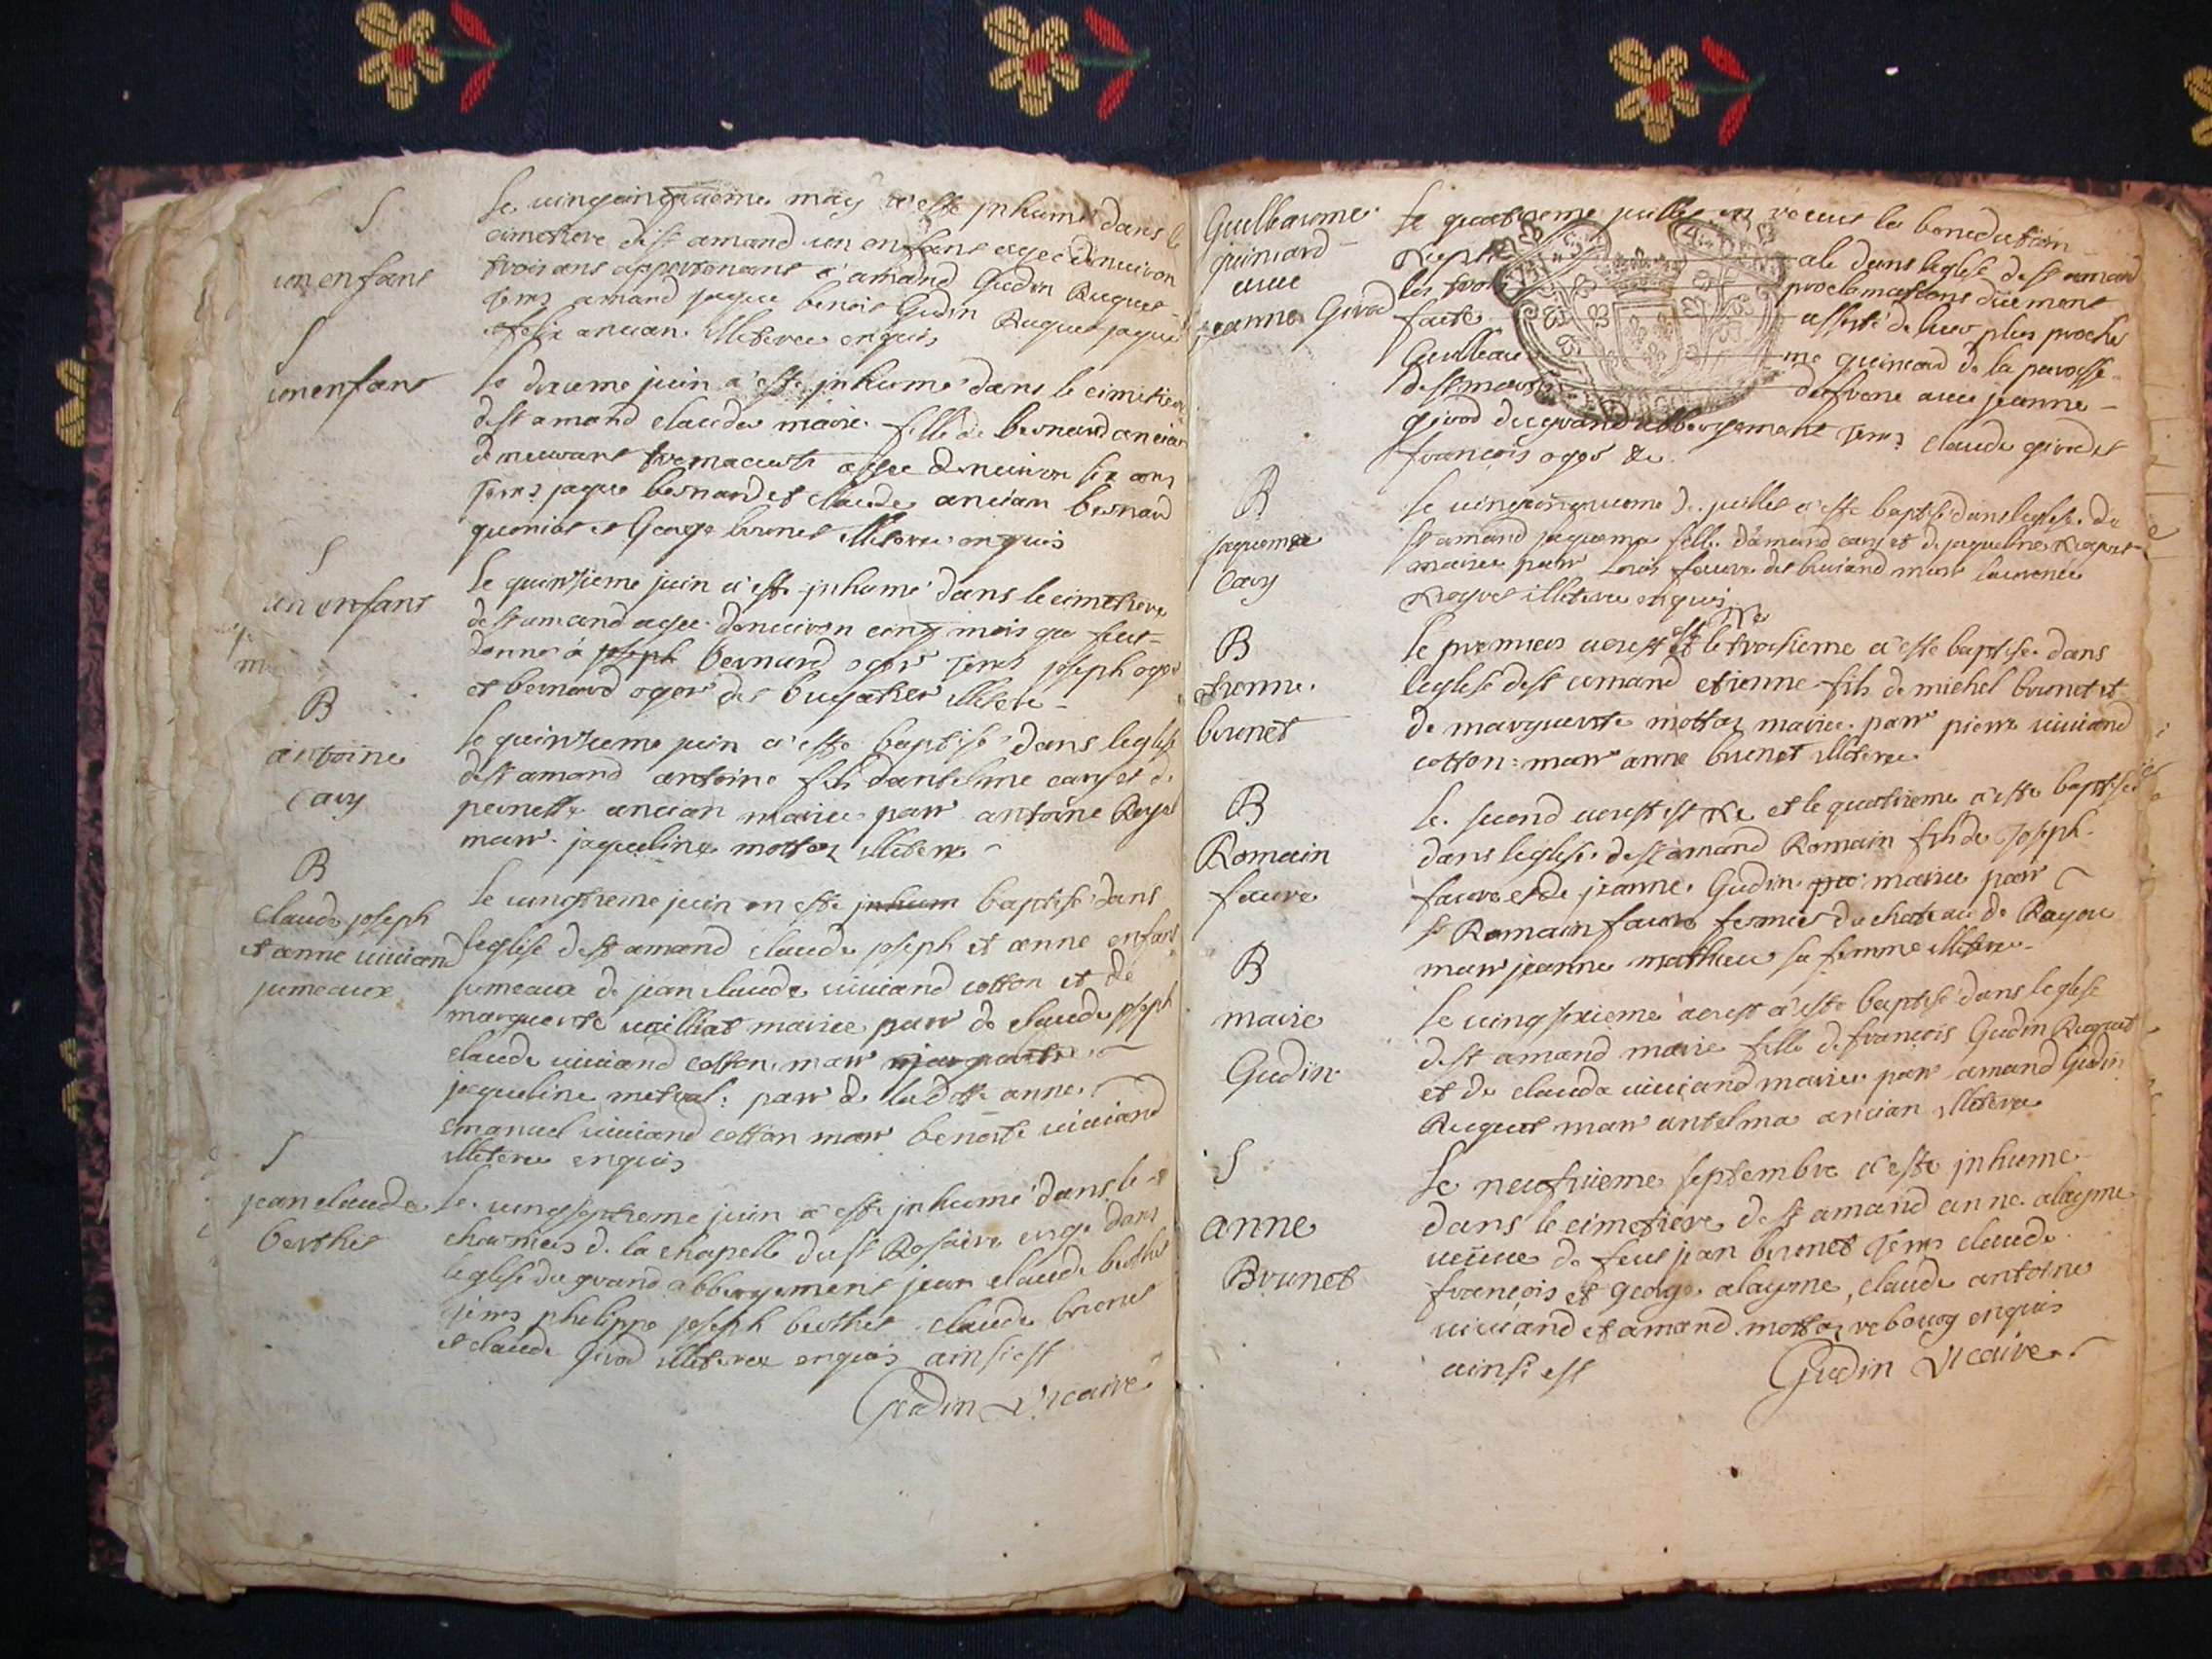 S
un enfant
Le vingcinquieme may a esté inhumé dans le
cimetiere de st amand un enfant agee denuiron
trois ans appartenant a amand Gudin Ruguet
Tems amand jaque benoit Gudin Ruguet jaque
et felix ancian illiterez enquis
S
un enfant
le juin a esté inhume dans le cimitiere
de st amand claude marie fille de bernard ancian
agee denuiron six ans
Tems jaque bernard et claude ancian bernard
et George brunet illiterez enquis
S
un enfant
Le quinzieme juin a esté inhumé dans le cimetiere
de st amand agee denuiron cinq mois qui fut
donné à joseph bernard oger Tems joseph oger
et bernard oger des illitere
B
antoine
cavy
le quinzieme juin a esté baptisé dans leglise
de st amand antoine fils dantelme cavy et de
pernette ancian mariez parr antoine
marr jaqueline mottaz illiterez
B
claude joseph
et anne uiuiand
jumeaux
le uingtieme juin on esté inhum baptisé dans
leglise de st amand claude joseph et anne enfans
jumeaux de jean claude uiuiand cotton et de
marguerite uailliat mariee parr de claude joseph
claude uiuiand cotton marr marguerite
jaqueline metral parr de ladtte anne
emanuel uiuiand cotton marr benoite uiuiand
illiterez enquis
S
jean claude
berthet
le uingseptieme juin a esté inhumé dans le
charniers de la chapelle du st Rosaire erigé dans
leglise du grand abbergement jean claude berthet
Tems philippe joseph berthet claude brunet
et claude Girod illiterez enquis ainsi est
Gudin Vicaire
Guelleaume
quinard
auec
jeanne Girod
le quatrieme juillet on receus la benediction
nuptiale dans leglise de st amand
les trois proclamations düement
faites assisté de leurs plus proches
Guelleaume quinard de la paroisse
de st martin du frene auec jeanne
girod du grand abbergement Tems claude girod et
françois oger &c
B
jaquema
cavy
le uingcinquieme de juillet a esté baptisé dans leglise de
st amand jaquema fille damand cavy et de jaqueline
mariee parr Louis faure de briand marr laurence
illiterez enquis
B
etienne
brunet
le premier aoust est né et le troisieme a esté baptisé dans
leglise de st amand etienne fils de michel brunet et
de marguerite mottaz mariee parr pierre uiuiand
cotton marr anne brunet illiterez
B
Romain
faure
le second aoust est né et le quatrieme a esté baptisé
dans leglise de st amand Romain fils de Joseph
faure et de jeanne Gudin mariee parr
sr Romain faure fermier du chateau de
marr jeanne mathieu sa femme illiterez
B
marie
Gudin
le uingsixieme aoust a esté baptisé dans leglise
de st amand marie fille de françois Gudin Ruguet
et de clauda uiuiand mariee parr amand Gudin
Ruguet marr antelma ancian illiterez
S
anne
Brunet
Le neufuieme septembre a esté inhume
dans le cimetiere de st amand anne alayme
ueuue de feu jean brunet Tems claude
françois et george alayme, claude antoine
uiuiand et amand mottaz enquis
ainsi est
Gudin Vicaire